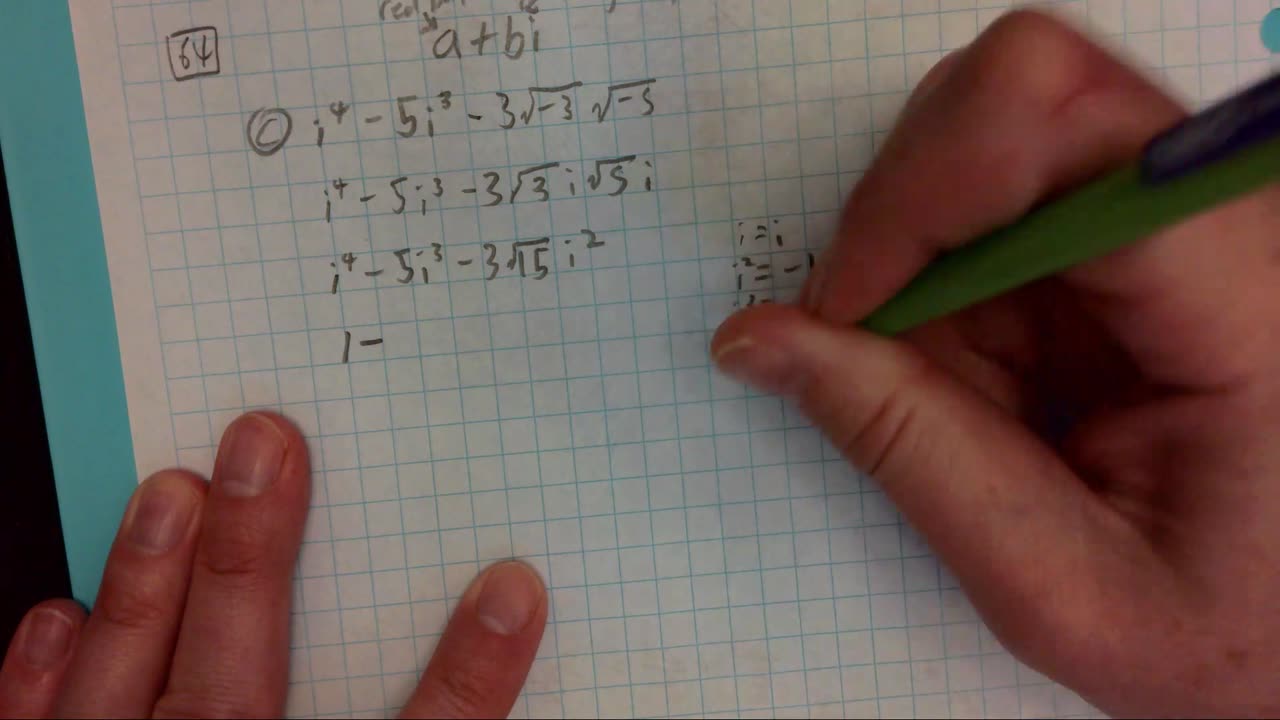 64
a + bi
© i⁴ - 5i³ - 3√-3 √-5
i⁴ - 5i³ - 3√3 i √5 i
i⁴ - 5i³ - 3√15 i²
1 -
i = i
i² = -1